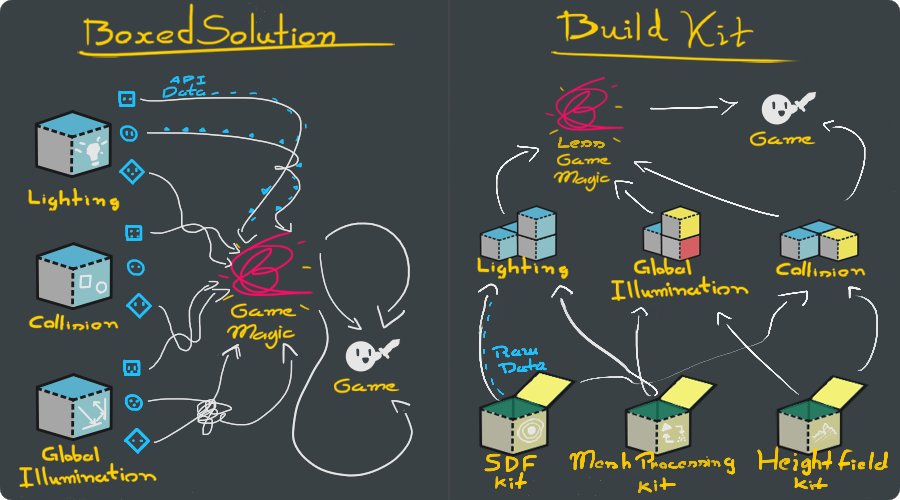 Boxed Solution
API
Data
Lighting
Collision
Game
Magic
Game
Global
Illumination
Build Kit
Less
Game
Magic
Game
Lighting
Global
Illumination
Collision
Raw
Data
SDF
kit
Mesh Processing
kit
Height field
kit